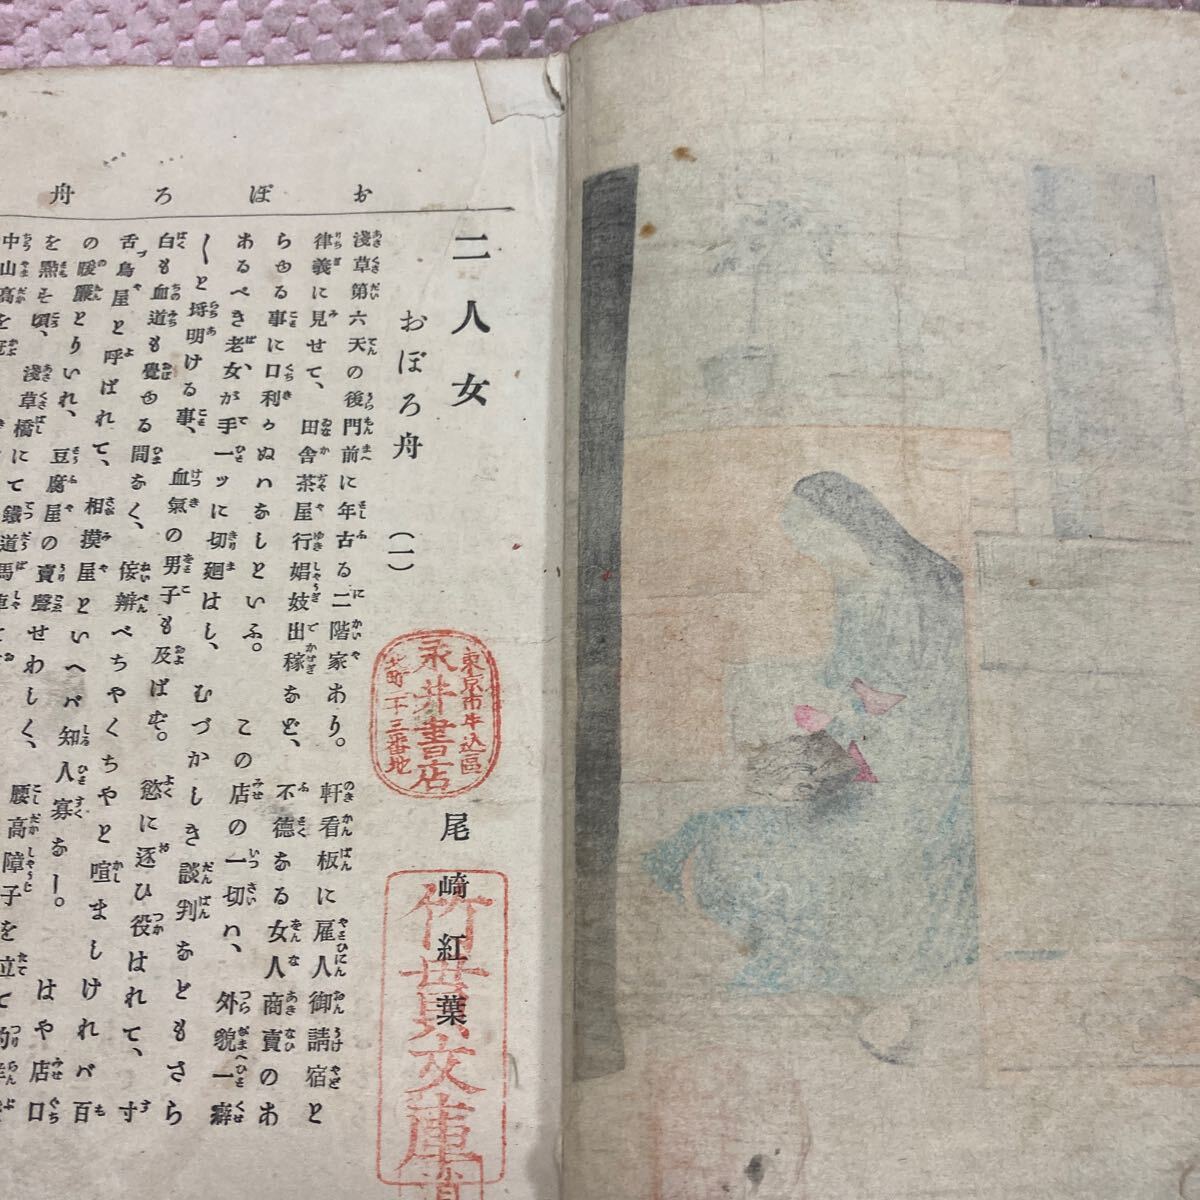 おぼろ舟
二人女
おぼろ舟（一）
尾崎紅葉
東京市牛込區
永井書店
竹世貝文庫
淺草第六天の後門前に年古る二階家あり。軒看板に雇人御請宿と
律義に見せて、田舎茶屋行娼妓出稼など、不徳なる女人商賣のあ
らゆる事に口利かぬハなしといふ。この店の一切ハ、外貌一癖
あるべき老女が手一ッに切廻はし、むづかしき談判なともさら
〳〵と埓明ける事、血氣の男子も及ばず。慾に逐ひ役はれて、寸
白も血道も覺ゆる間なく、侫辨べちやくちやと喧ましければ百
舌鳥屋と呼ばれて、相摸屋といへバ知人寡なー。はや店口
の暖簾とりいれ、豆腐屋の賣聲せわしく、腰高障子を立て
を點そ頃、淺草橋にて鐵道馬車
中山高を